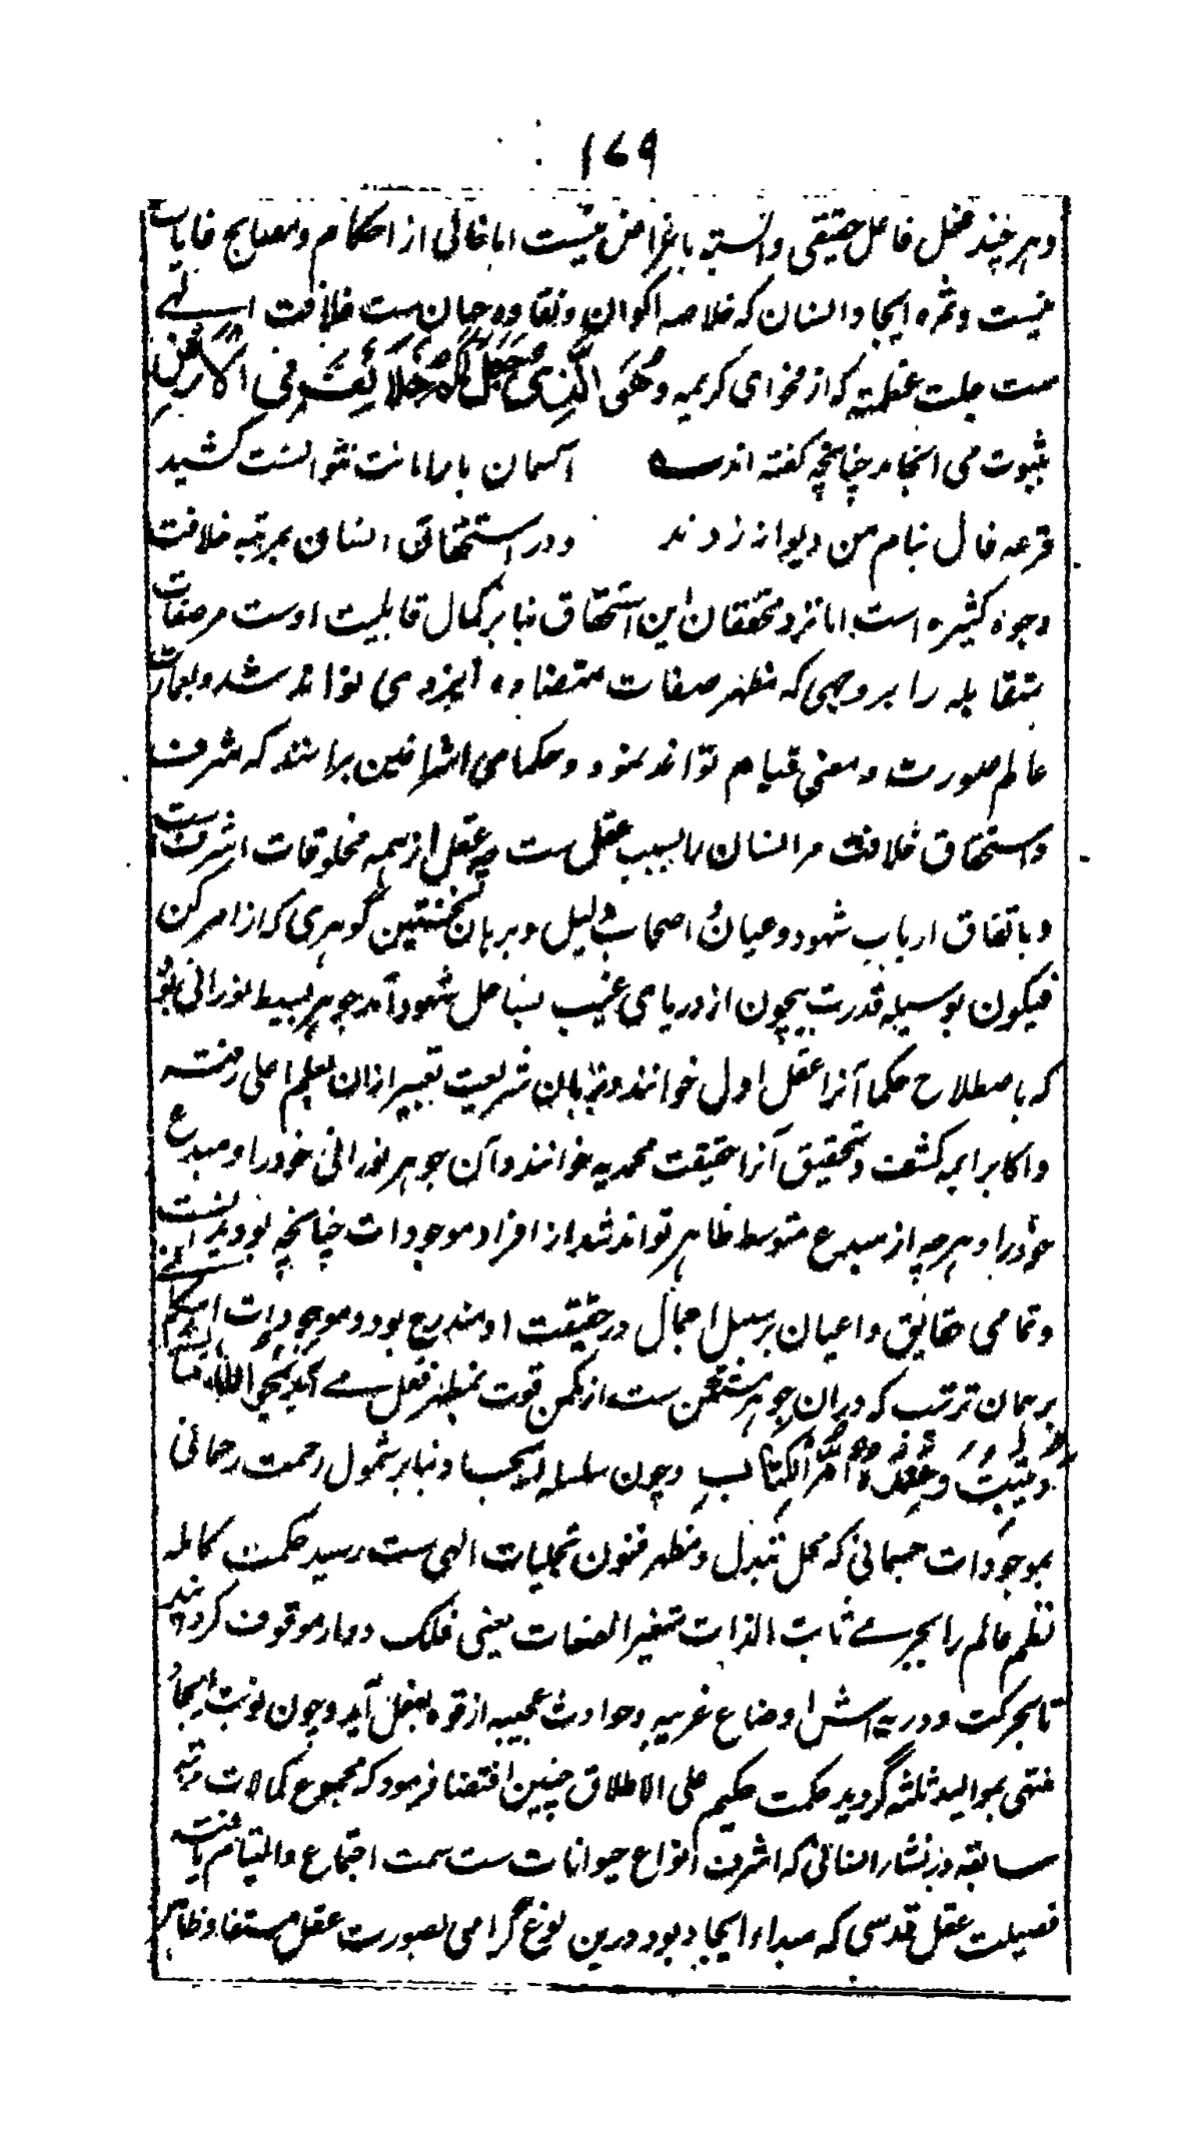 ۱۶۹
و هر چند فعل فاعل حقیقی وابسته باغراض نیست اما خالی از احکام و مصالح و غایات
نیست و ثمره ایجاد انسان که خلاصه اکوان و نقاوه جهان ست خلافت الهی
ست جلت عظمته که از فحوای کریمه وَهُوَ الَّذِی جَعَلَکُمْ خَلَائِفَ فِی الْاَرْضِ
بثبوت می انجامد چنانچه گفته اند ؎ آسمان بار امانت نتوانست کشید
قرعه فال بنام من دیوانه زدند و در استحقاق انسان بمرتبه خلافت
وجوه کثیره است اما نزد محققان این استحقاق بنابر کمال قابلیت اوست مر صفات
متقابله را بر وجهی که مظهر صفات متضاده ایزدی تواند شد و بعمارت
عالم صورت و معنی قیام تواند نمود و حکمای اشراقیین برانند که شرف
و استحقاق خلافت مر انسان را بسبب عقل ست چه عقل از همه مخلوقات اشرف ست
و باتفاق ارباب شهود و عیان و اصحاب دلیل و برهان نخستین گوهری که از امر کن
فیکون بوسیله قدرت بیچون از دریای غیب بساحل شهود آمد جوهر بسیط نورانی بود
که باصطلاح حکما آنرا عقل اول خوانند و بزبان شریعت تعبیر ازان بقلم اعلی رفته
و اکابر ایمه کشف و تحقیق آنرا حقیقت محمدیه خوانند و آن جوهر نورانی خود را و مبدع
خود را و هرچه از مبدع متوسط ظاهر تواند شد از افراد موجودات چنانچه بود بدانست
و تمامی حقایق و اعیان بر سبیل اجمال در حقیقت او مندرج بود و موجودات
بر همان ترتب که دران جوهر مستکن ست از مکمن قوت بمظهر فعل می آید یَمْحُو اللّٰهُ مَا یَشَاءُ
وَیُثْبِتُ وَعِنْدَهُ اُمُّ الْکِتَابِ و چون سلسله ایجاد بنابر شمول رحمت رحمانی
بموجودات جسمانی که محل تبدل و مظهر فنون تجلیات الهی ست رسید حکمت کامله
نظم عالم را بجرمے ثابت الذات متغیر الصفات یعنی فلک دوار موقوف گردانید
تا بحرکت دوریه اش اوضاع غریبه و حوادث عجیبه از قوه بفعل آید و چون نوبت ایجاد
منتهی بموالید ثلثه گردید حکمت حکیم علی الاطلاق چنین اقتضا فرمود که مجموع کمالات مراتب
سابقه در نشاء انسانی که اشرف انواع حیوانات ست سمت اجتماع و التیام یافته
فضیلت عقل قدسی که مبداء ایجاد بود درین نوع گرامی بصورت عقل مستفاد ظاهر